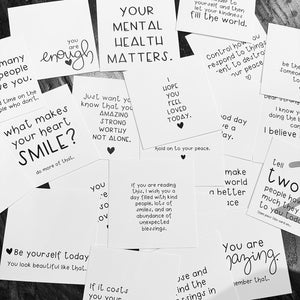 YOUR
MENTAL
HEALTH
MATTERS.
yourself and then
let your kindness
fill the world.
you are
enough
many
people
ve you.
time on the
ple who don't.
control how
respond to
ent to destroy
our peace.
I
HOPE
YOU
FEEL
LOVED
TODAY.
Just want you to
know that you
AMAZING
STRONG
WORTHY
NOT ALONE.
what makes
your heart
SMILE?
do more of that.
hold on to your peace.
I believe
tell
two
people how
much you
If you are reading
this, I wish you a
day filled with kind
people, lots of
smiles, and an
abundance of
unexpected
blessings.
make
world
better
Be yourself today
you look beautiful like that.
you are
amazing.
member that.
If it costs
use and
ind the
essings in